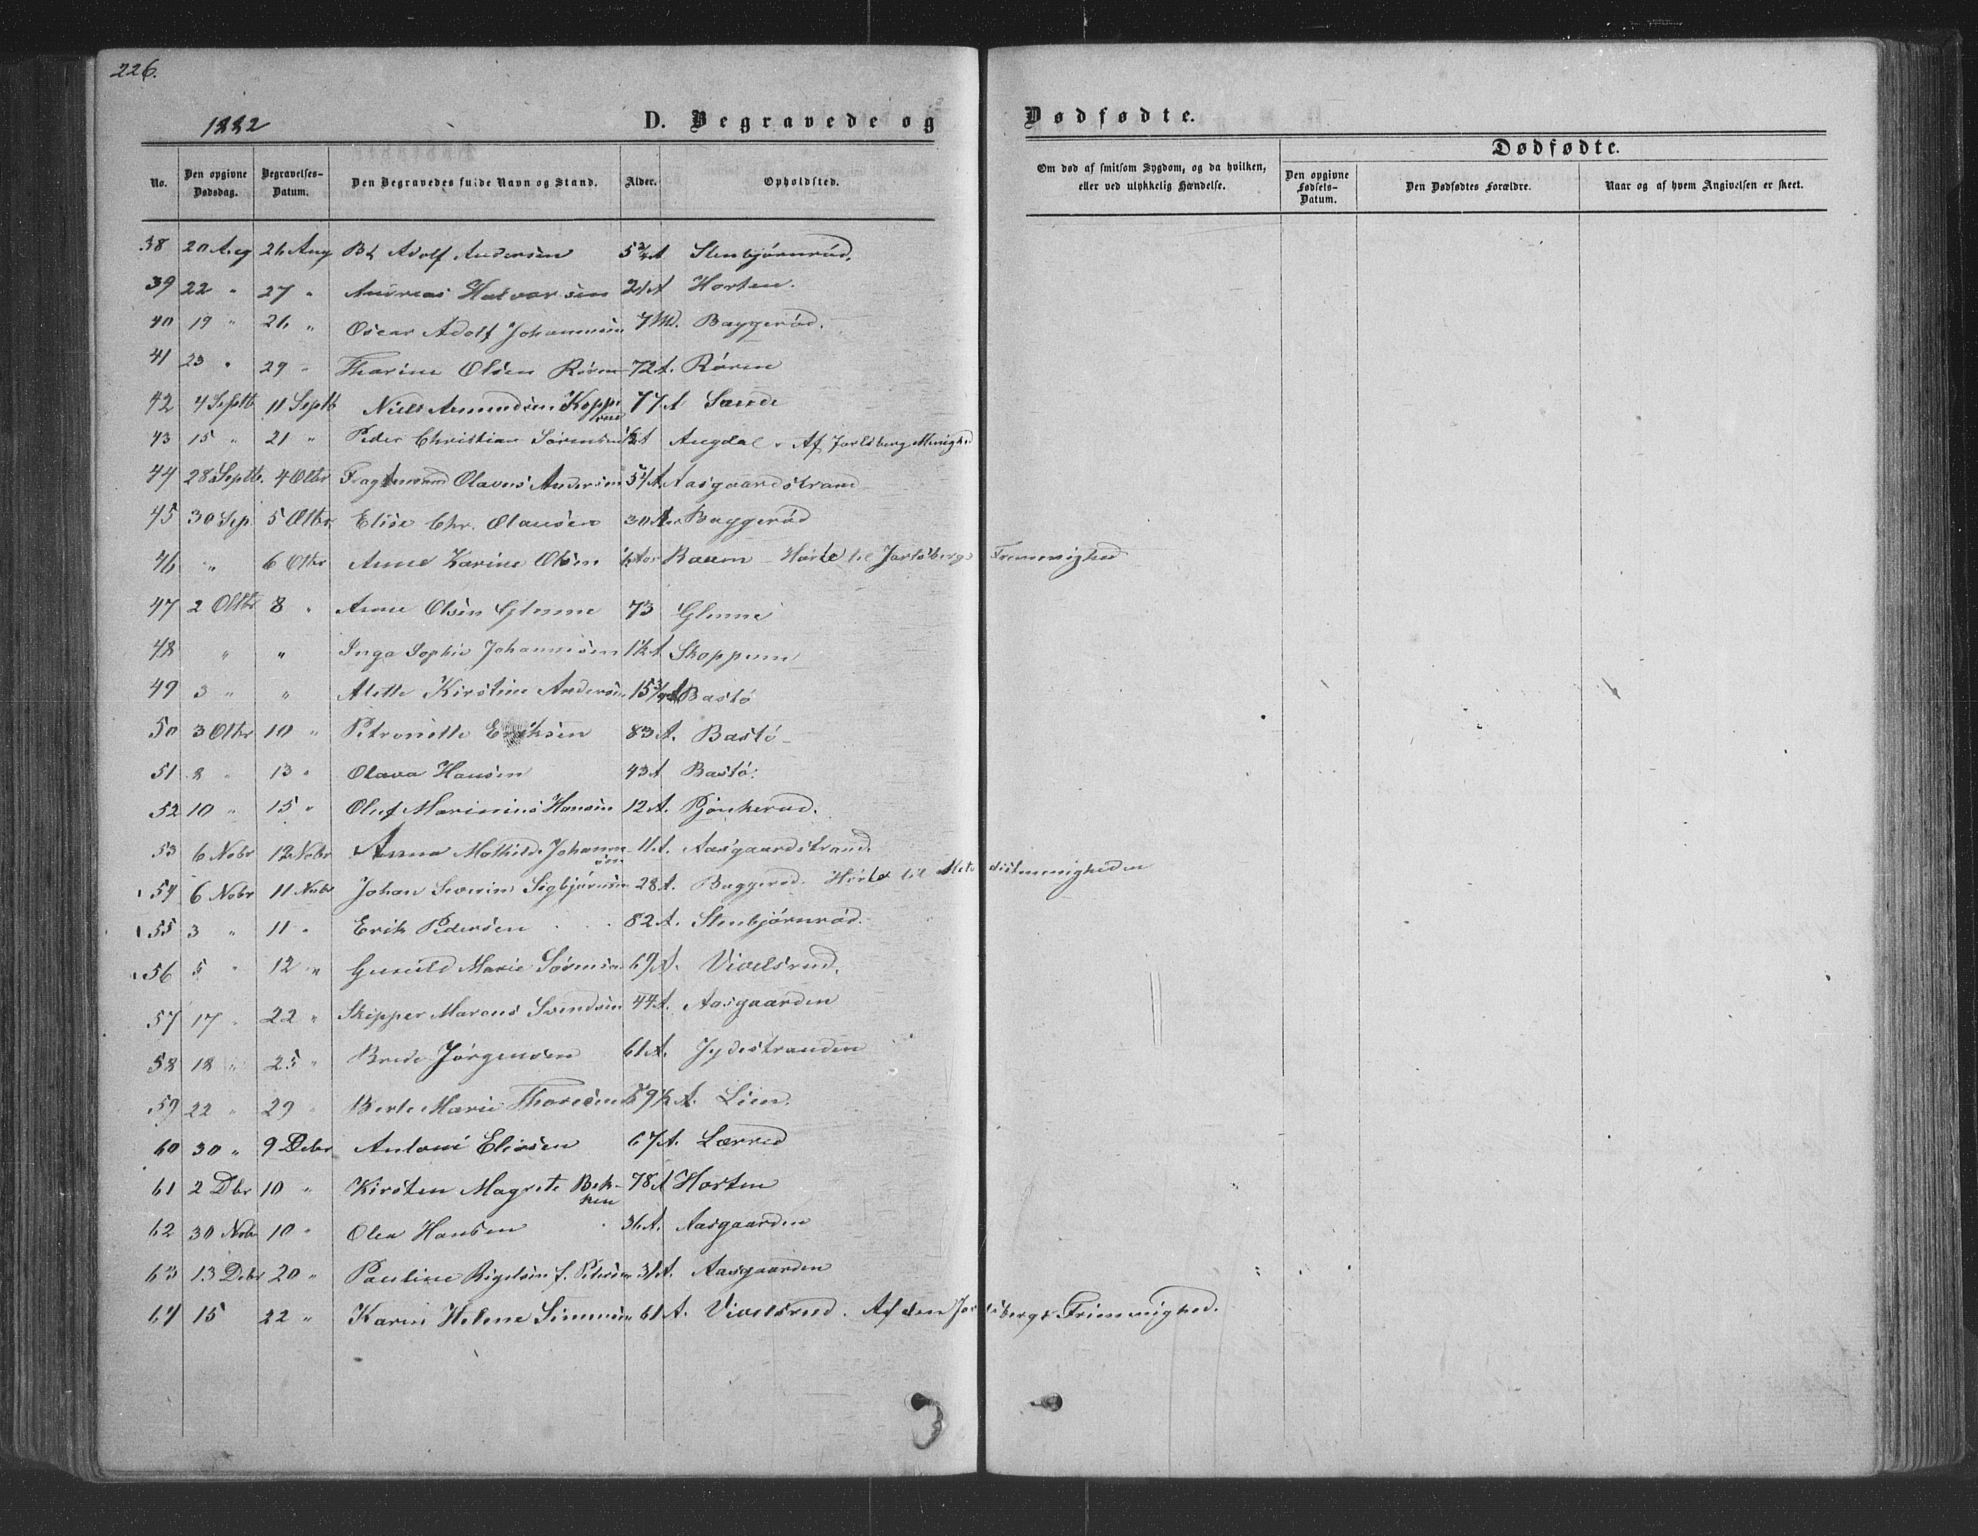 226.
1882
D. Begravede og Dødfødte.
Dødfødte.
No. Den opgivne Dødsdag. Begravelses-Datum. Den Begravedes fulde Navn og Stand. Alder. Opholdsted. Om død af smitsom Sygdom, og da hvilken, eller ved ulykkelig Hændelse. Den opgivne Fødsels-Datum. Den Dødfødtes Forældre. Naar og af hvem Angivelsen er skeet.
38 20 Aug 26 Aug Adolf Andersen 5 3/4 A Stenbjørnrød.
39 22 " 27 " Andreas Halvorsen 21 A Horten.
40 19 " 26 " Oscar Adolf Johannesen 7 Md. Baggerød.
41 23 " 29 " Thorine Olsen Røren 72 A. Røren
42 4 Septb 11 Septb Niels Amundsen 77 A Sande
43 15 " 21 " Peder Christian Sørensen ½ A Augdal Af Jarlsberg Menighed
44 28 Septb. 4 Otbr Olavus Andersen Aasgaardstrand
45 30 Sep. 5 Otbr. Elise Chr. Olausen 30 Aar Baggerød
46 " 6 Otbr Anne Karine Olsen ½ Aar Hørte til Jarlsbergs Frimenighed
47 2 Otbr 8 " Anne Olsen Glenne 73 Glenne
48 " " Inga Sophie Johannesen 1½ A Skoppum
49 3 " " Alette Kirstine Andersen 15 3/4 A Bastø
50 3 Otbr 10 " Petronette Eriksen 83 A. Bastø
51 8 " 13 " Olava Hansen 43 A Bastø.
52 10 " 15 " Oluf Marinius Hansen 12 A.
53 6 Nobr 12 Nobr Anna Mathilde Johannesen 11 A. Aasgaardstrand.
54 6 Nobr 11 Nobr Johan Severin Sigbjørnsen 28 A. Baggerød. Hørte til Metodistmenigheden
55 3 " 11 " Erik Pedersen 82 A. Stenbjørnrød.
56 5 " 12 " Gunild Marie Sørensen 69 A. Vivelsrud.
57 17 " 22 " Skipper Marcus Svendsen 44 A. Aasgaarden
58 18 " 25 " Brede Jørgensen 61 A. Jydestranden
59 22 " 29 " Berte Marie Thoresen 59½ A. Lien.
60 30 " 9 Debr Antoni Eliasen 67 A.
61 2 Dbr 10 " Kirsten Magrete Bekken 78 A Horten
62 30 Nobr 10 " Olea Hansen 36 A. Aasgaarden
63 13 Debr 20 " Pauline f. Petersen 31 A. Aasgaarden
64 15 22 " Karen Helene Simensen 61 A. Vivelsrud. Af den Jarlsbergs Frimenighed.